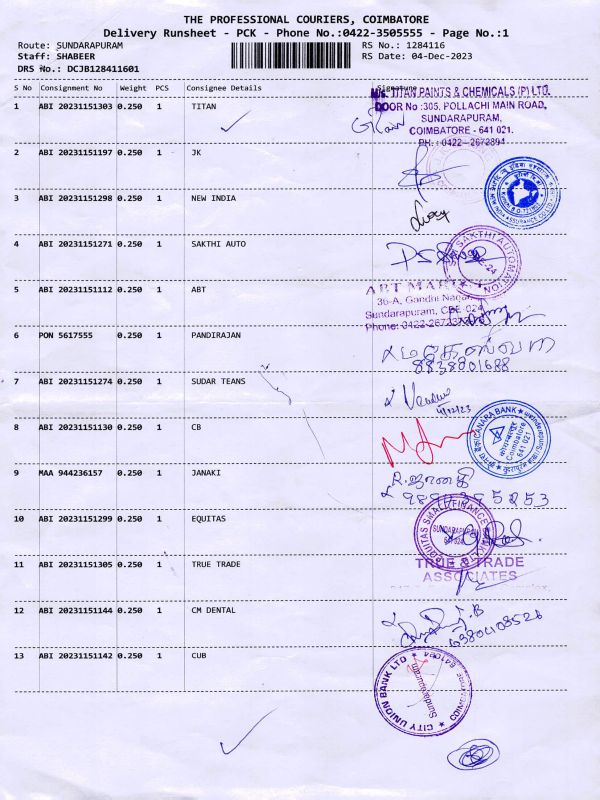 THE PROFESSIONAL COURIERS, COIMBATORE
Delivery Runsheet - PCK - Phone No.:0422-3505555 - Page No.:1
Route: SUNDARAPURAM
RS No.: 1284116
Staff: SHABEER
RS Date: 04-Dec-2023
DRS No.: DCJB128411601
S No Consignment No Weight PCS Consignee Details Signature
M/s. TITAN PAINTS & CHEMICALS (P) LTD.
1 ABI 20231151303 0.250 1 TITAN
DOOR No :305, POLLACHI MAIN ROAD,
SUNDARAPURAM,
COIMBATORE - 641 021.
PH. : 0422 - 2672394
2 ABI 20231151197 0.250 1 JK
3 ABI 20231151298 0.250 1 NEW INDIA
4 ABI 20231151271 0.250 1 SAKTHI AUTO
SAKTHI AUTOMATION
5 ABI 20231151112 0.250 1 ABT
ABT MAR
36-A, Gandhi Nagar
Sundarapuram, CBE-024
Phone: 0422-2672
6 PON 5617555 0.250 1 PANDIRAJAN
8838801688
7 ABI 20231151274 0.250 1 SUDAR TEANS
4/12/23
8 ABI 20231151130 0.250 1 CB
CANARA BANK
Coimbatore
641 021
9 MAA 944236157 0.250 1 JANAKI
R. ஜானகி
10 ABI 20231151299 0.250 1 EQUITAS
EQUITAS SMALL FINANCE BANK
SUNDARAPURAM
11 ABI 20231151305 0.250 1 TRUE TRADE
TRUE TRADE
ASSOCIATES
12 ABI 20231151144 0.250 1 CM DENTAL
13 ABI 20231151142 0.250 1 CUB
CITY UNION BANK LTD
Sundarapuram